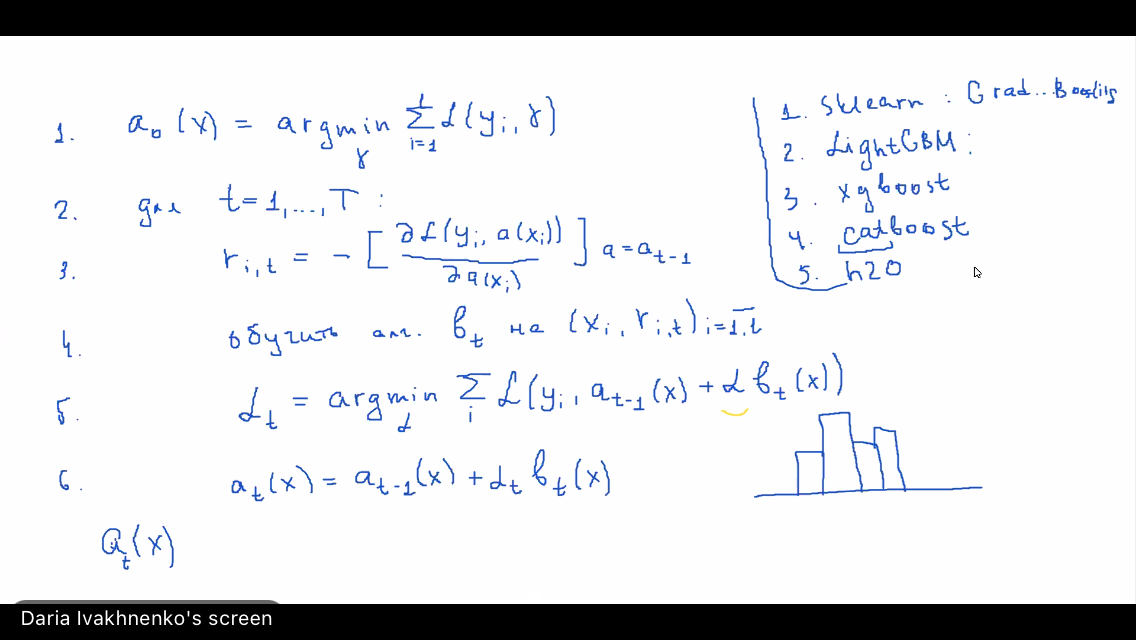 1. a₀(x) = argmin_γ Σ_{i=1}^{l} L(yᵢ, γ)
2. для t=1,...,T :
3. r_{i,t} = - [ ∂L(yᵢ, a(xᵢ)) / ∂a(xᵢ) ] a=a_{t-1}
4. обучить алг. b_t на (xᵢ, r_{i,t}) i=1,l
5. α_t = argmin_α Σ_i L(yᵢ, a_{t-1}(x) + α b_t(x))
6. a_t(x) = a_{t-1}(x) + α_t b_t(x)
a_t(x)
1. Sklearn : Grad..Boosting
2. LightGBM :
3. xgboost
4. catboost
5. h2O
Daria Ivakhnenko's screen